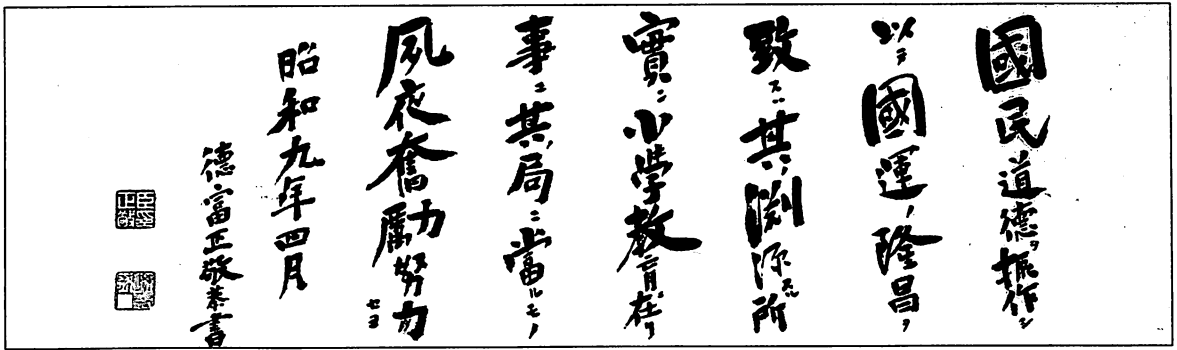 國民道德ヲ振作シ
以テ國運ノ隆昌ヲ
致スハ其淵源スル所
實ニ小学教育在リ
事ニ其局ニ當ルモノ
夙夜奮励努力セヨ
昭和九年四月
德富正敬恭書